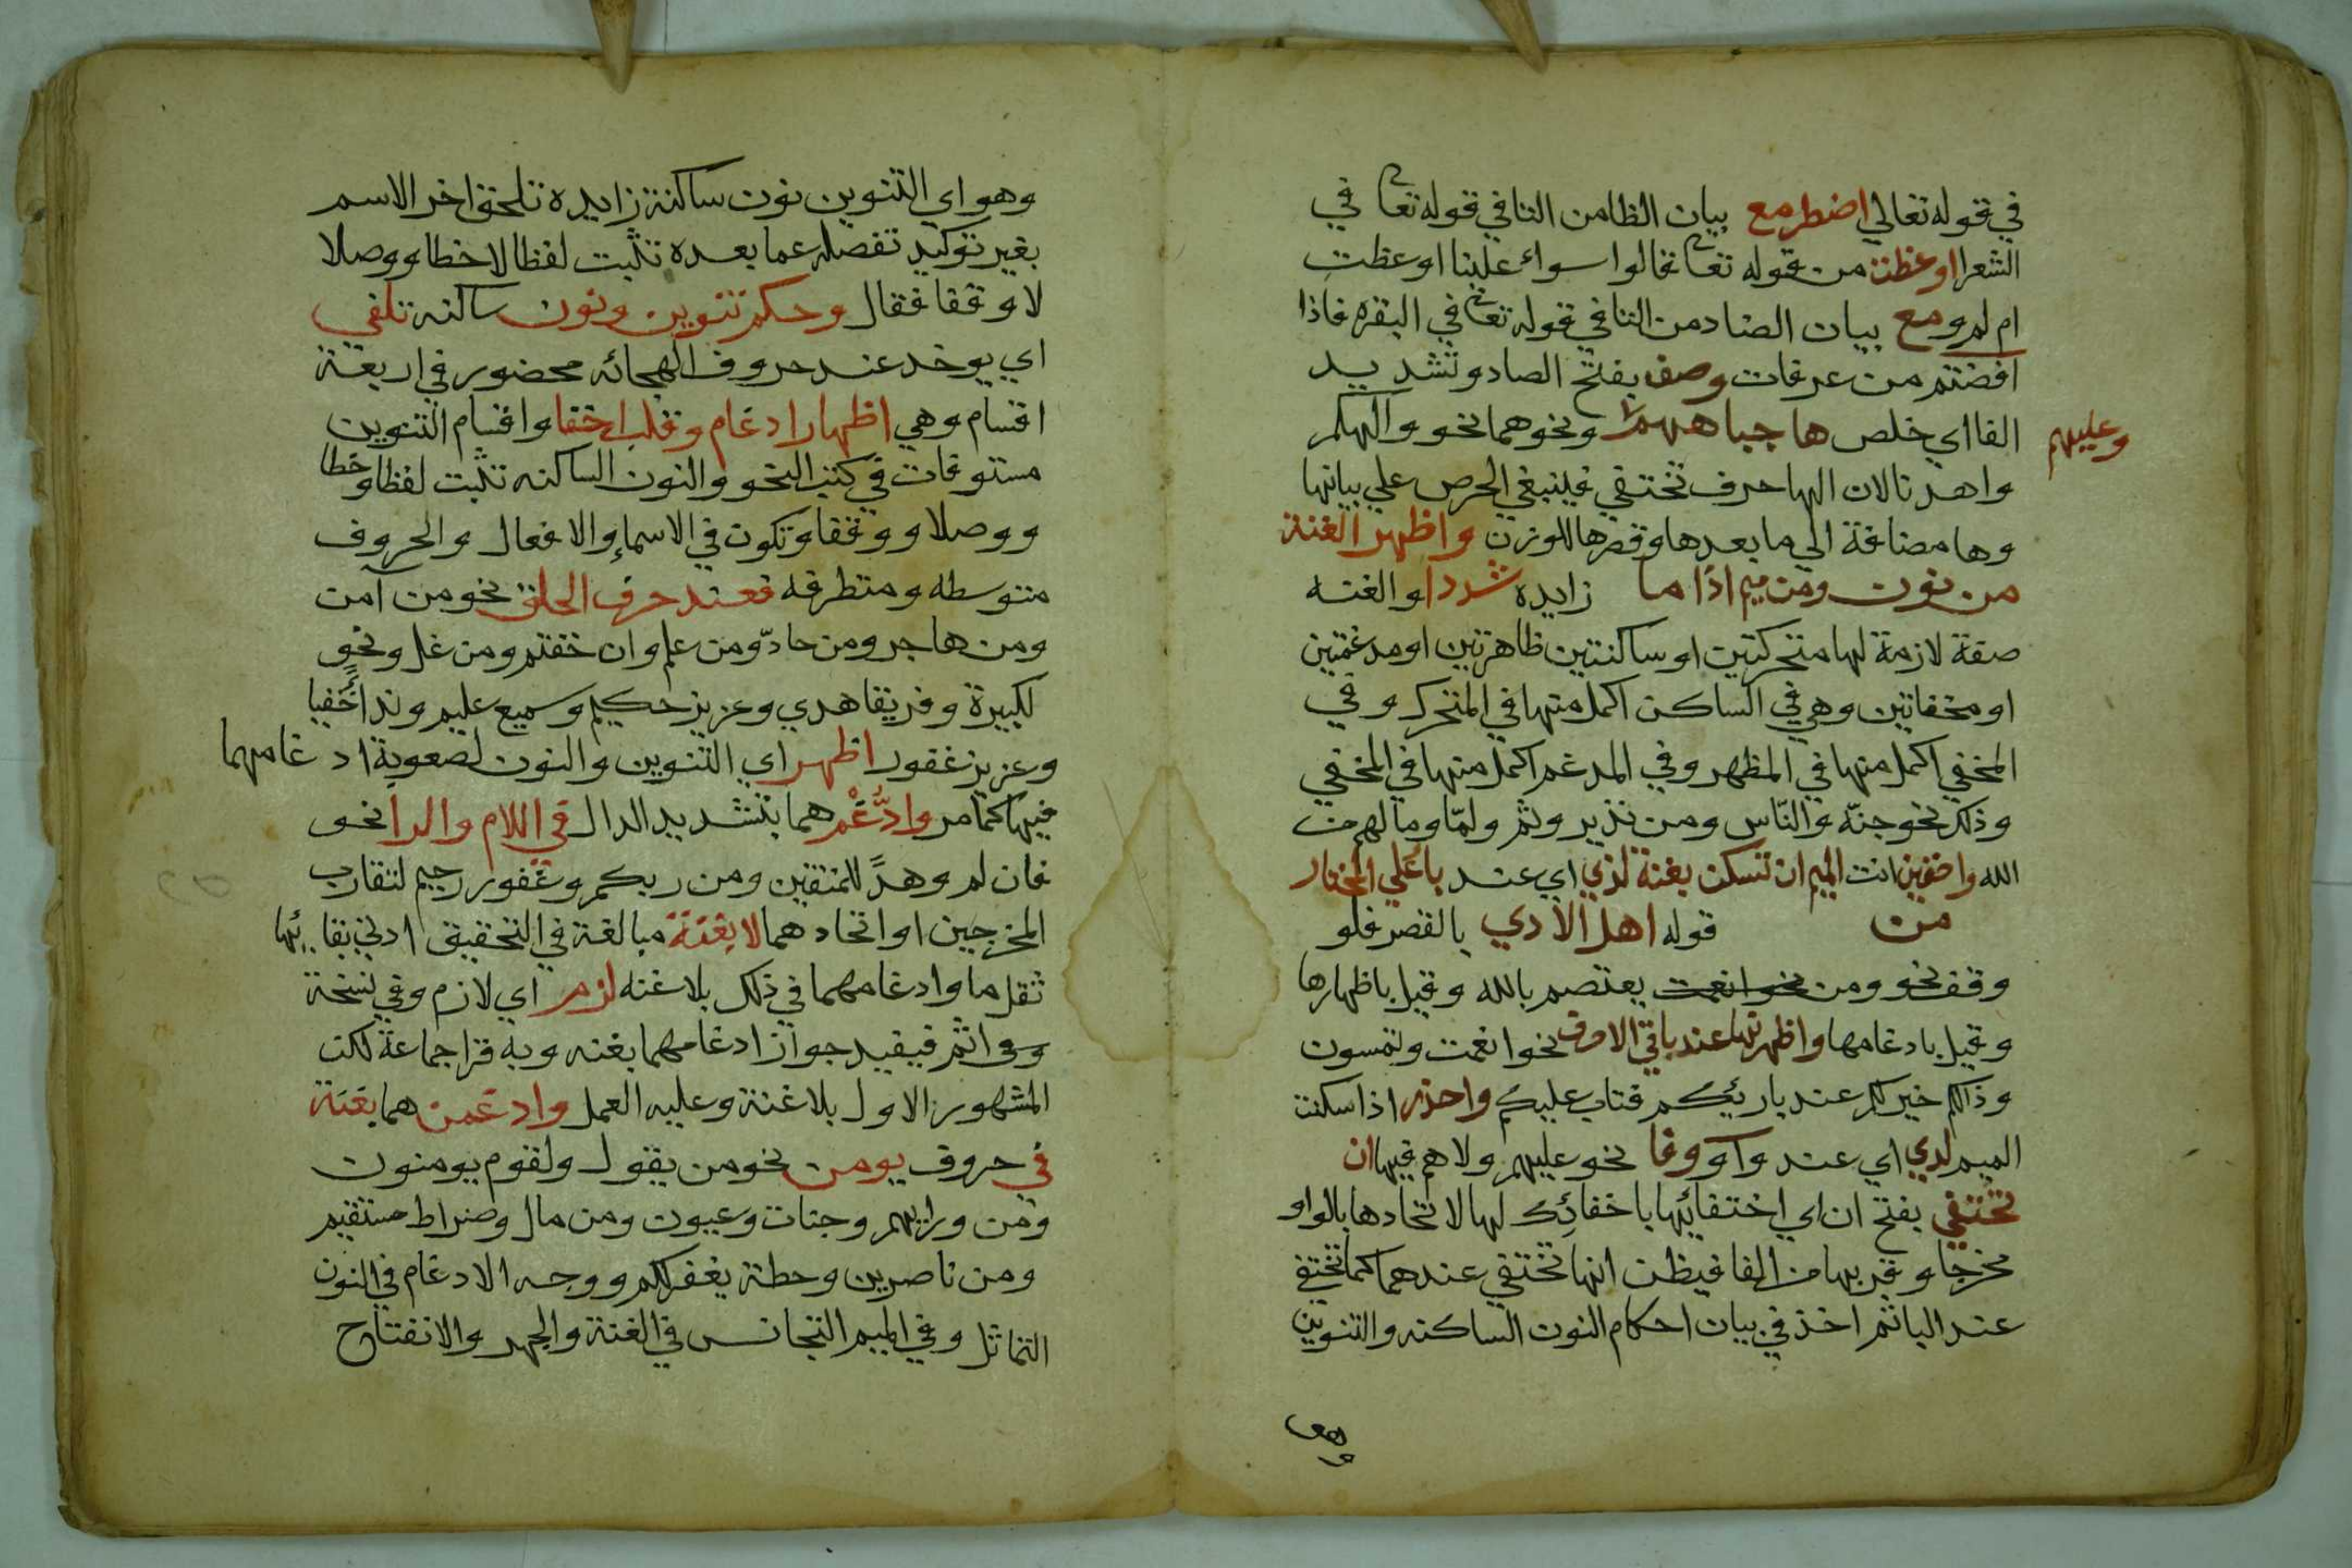 في قوله تعالي اضطر مع بيان الظا من التا في قوله تعا في
الشعرا اوعظت من قوله تعا قالوا سواء علينا اوعظت
ام لم ومع بيان الضاد من التا في قوله تعا في البقره فاذا
افضتم من عرفات وصف بفتح الصاد وتشديد
الفا اي خلص ها جباههم ونحوهما نحو والهكم
وعليهم
واهدنا لان الها حرف تختفي فينبغي الحرص علي بيانها
وها مضافة الي ما بعدها وقصرها للوزن واظهر الغنة
من نون ومن ميم اذا ما زايده شددا والغنه
صفة لازمة لها متحركتين او ساكنتين ظاهرتين او مدغمتين
او مخفاتين وهي في الساكن اكمل منها في المتحرك وفي
المخفي اكمل منها في المظهر وفي المدغم اكمل منها في المخفي
وذلك نحو جنّه والنّاس ومن نذير وثم ولمّا وما لهم من
الله واخفين انت الميم ان تسكن بغنة لذي اي عند با علي المختار
من قوله اهل الادي بالقصر فلو
وقف نحو ومن نحو انعمت يعتصم بالله وقيل باظهارها
وقيل بادغامها واظهرنها عند باقي الاحرف نحو انعمت وتمسون
وذلكم خير لكم عند بارئكم فتاب عليكم واحذر اذا سكنت
الميم لدي اي عند واو وفا نحو عليهم ولا هم فيها ان
تختفي بفتح ان اي اختفائها باخفائك لها لاتحادها بالواو
مخرجا وقربها من الفا فيظن انها تختفي عندهما كما تختفي
عند البا ثم اخذ في بيان احكام النون الساكنه والتنوين
وهو
وهو اي التنوين نون ساكنة زايده تلحق اخر الاسم
بغير توكيد تفصله عما بعده تثبت لفظا لا خطا ووصلا
لا وقفا فقال وحكم تنوين ونون ساكنه تلفي
اي يوخد عند حروف الهجائه محضور في اربعة
اقسام وهي اظهار ادغام وقلب اخفا واقسام التنوين
مستوفات في كتب النحو والنون الساكنه تثبت لفظا وخطا
ووصلا ووقفا وتكون في الاسماء والافعال والحروف
متوسطه ومتطرفه فعند حرف الحلق نحو من آمن
ومن هاجر ومن حادّ ومن علم وان خفتم ومن غل ونحو
لكبيرة وفريقا هدي وعزيز حكيم وسميع عليم وندا خفيا
وعزيز غفور اظهر اي التنوين والنون لصعوبة ادغامهما
فيها كما مر وادُّغم هما بتشديد الدال في اللام والرا نحو
فان لم وهدً للمتقين ومن ربكم وغفور رحيم لتقارب
المخرجين او اتحادهما لا بغنة مبالغة في التخفيق ادني بقائها
ثقل ما وادغامهما في ذلك بلا غنه لزم اي لازم وفي نسخة
وفي اتم فيفيد جواز ادغامهما بغنه وبه قرا جماعة لكن
المشهور الاول بلا غنة وعليه العمل وادغمن هما بغنة
في حروف يومن نحو من يقول ولقوم يومنون
ومن ورايهم وجنات وعيون ومن مال وصراط مستقيم
ومن ناصرين وحطة يغفر لكم ووجه الادغام في النون
التماثل وفي الميم التجانس في الغنة والجهر والانفتاح